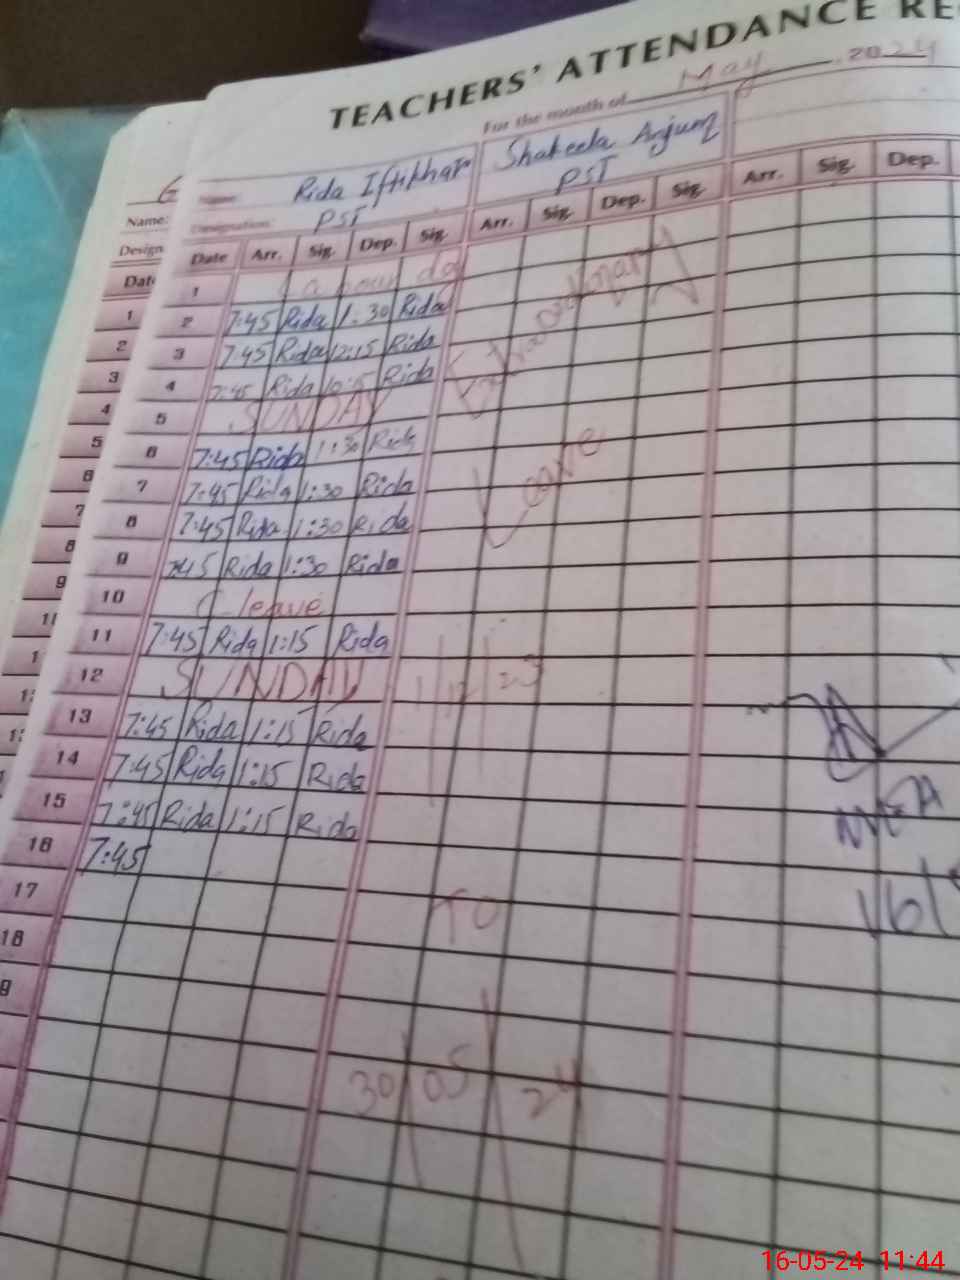 TEACHERS' ATTENDANCE RE
For the month of May 2024
Name: Rida Iftikhar Shakeela Anjum
Designation: PST PST
Date Arr. Sig. Dep. Sig. Arr. Sig. Dep. Sig Arr. Sig. Dep.
1
2 7:45 Rida 1:30 Rida
3 7:45 Rida 12:15 Rida
4 7:45 Rida Rida
5 SUNDAY
6 7:45 Rida 1:30 Rida
7 7:45 Rida 1:30 Rida
8 7:45 Rida 1:30 Rida
9 7:45 Rida 1:30 Rida
10 C leave
11 7:45 Rida 1:15 Rida
12 SUNDAY
13 7:45 Rida 1:15 Rida
14 7:45 Rida 1:15 Rida
15 7:45 Rida 1:15 Rida
16 7:45
17
18
9
Extraordinary
Leave
1/12/23
TO
30/05/24
Name:
Design
Date
1
2
3
4
5
6
7
8
9
16-05-24 11:44